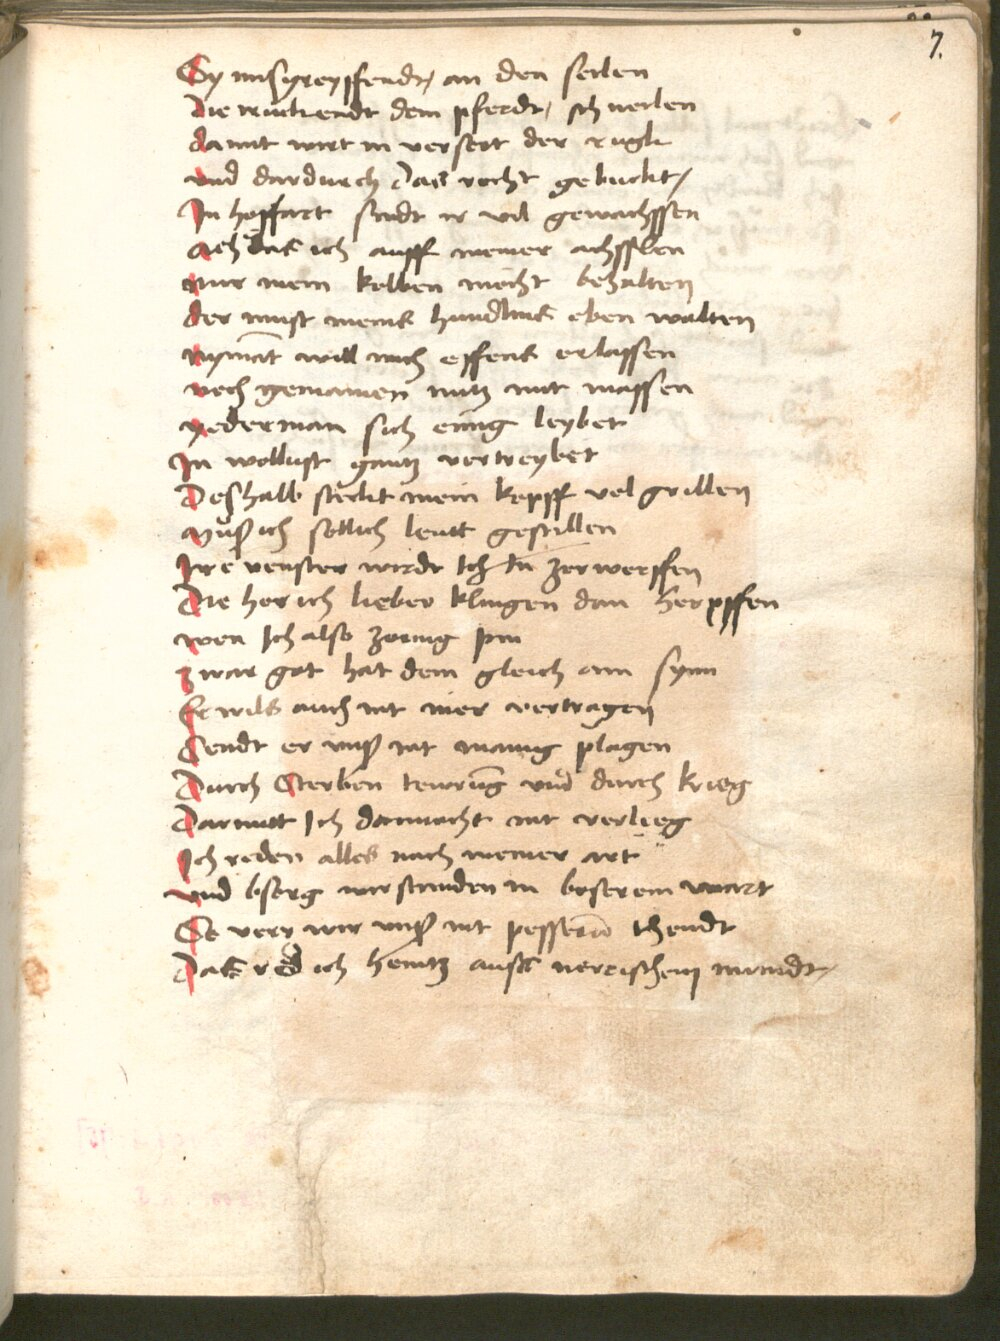 7.
Sy missgreyffendt, an den seilen
Die ruckendt dem pferdt, sch neilen
damit wirt in versert der rugk
vnd dardurch das recht gebuckt,
In hoffart sindt ir vil gewachssen
ich auff meiner achsslen
nur mein kolben mecht behalten
der must meins hundlins eben walten
nymāt will mich essens erlassen
noch gemainen nutz mit massen
yederman sich einig leybet
In wollust gantz vertreybet
Deshalb steckt mein kopff vol grillen
Mus ich sollich leutt gestillen
Ire venster wirdt Ich In zerwerffen
Die hor ich lieber klingen dan herpffen
wen Ich also zornig pin
zwar got hat dem gleich ain synn
Er wils auch nit mer vertragen
Sendt er vnns mit manig plagen
Durch Sterben tewrūg vnd durch krieg
Darmitt Ich dannacht nit verlieg
Ich reden alles nach meiner art
vnd bsorg wir standen in boserem wart
So verr wir vnns nit pesserū thendt
Das red ich heintz auss nerrischem mundt,